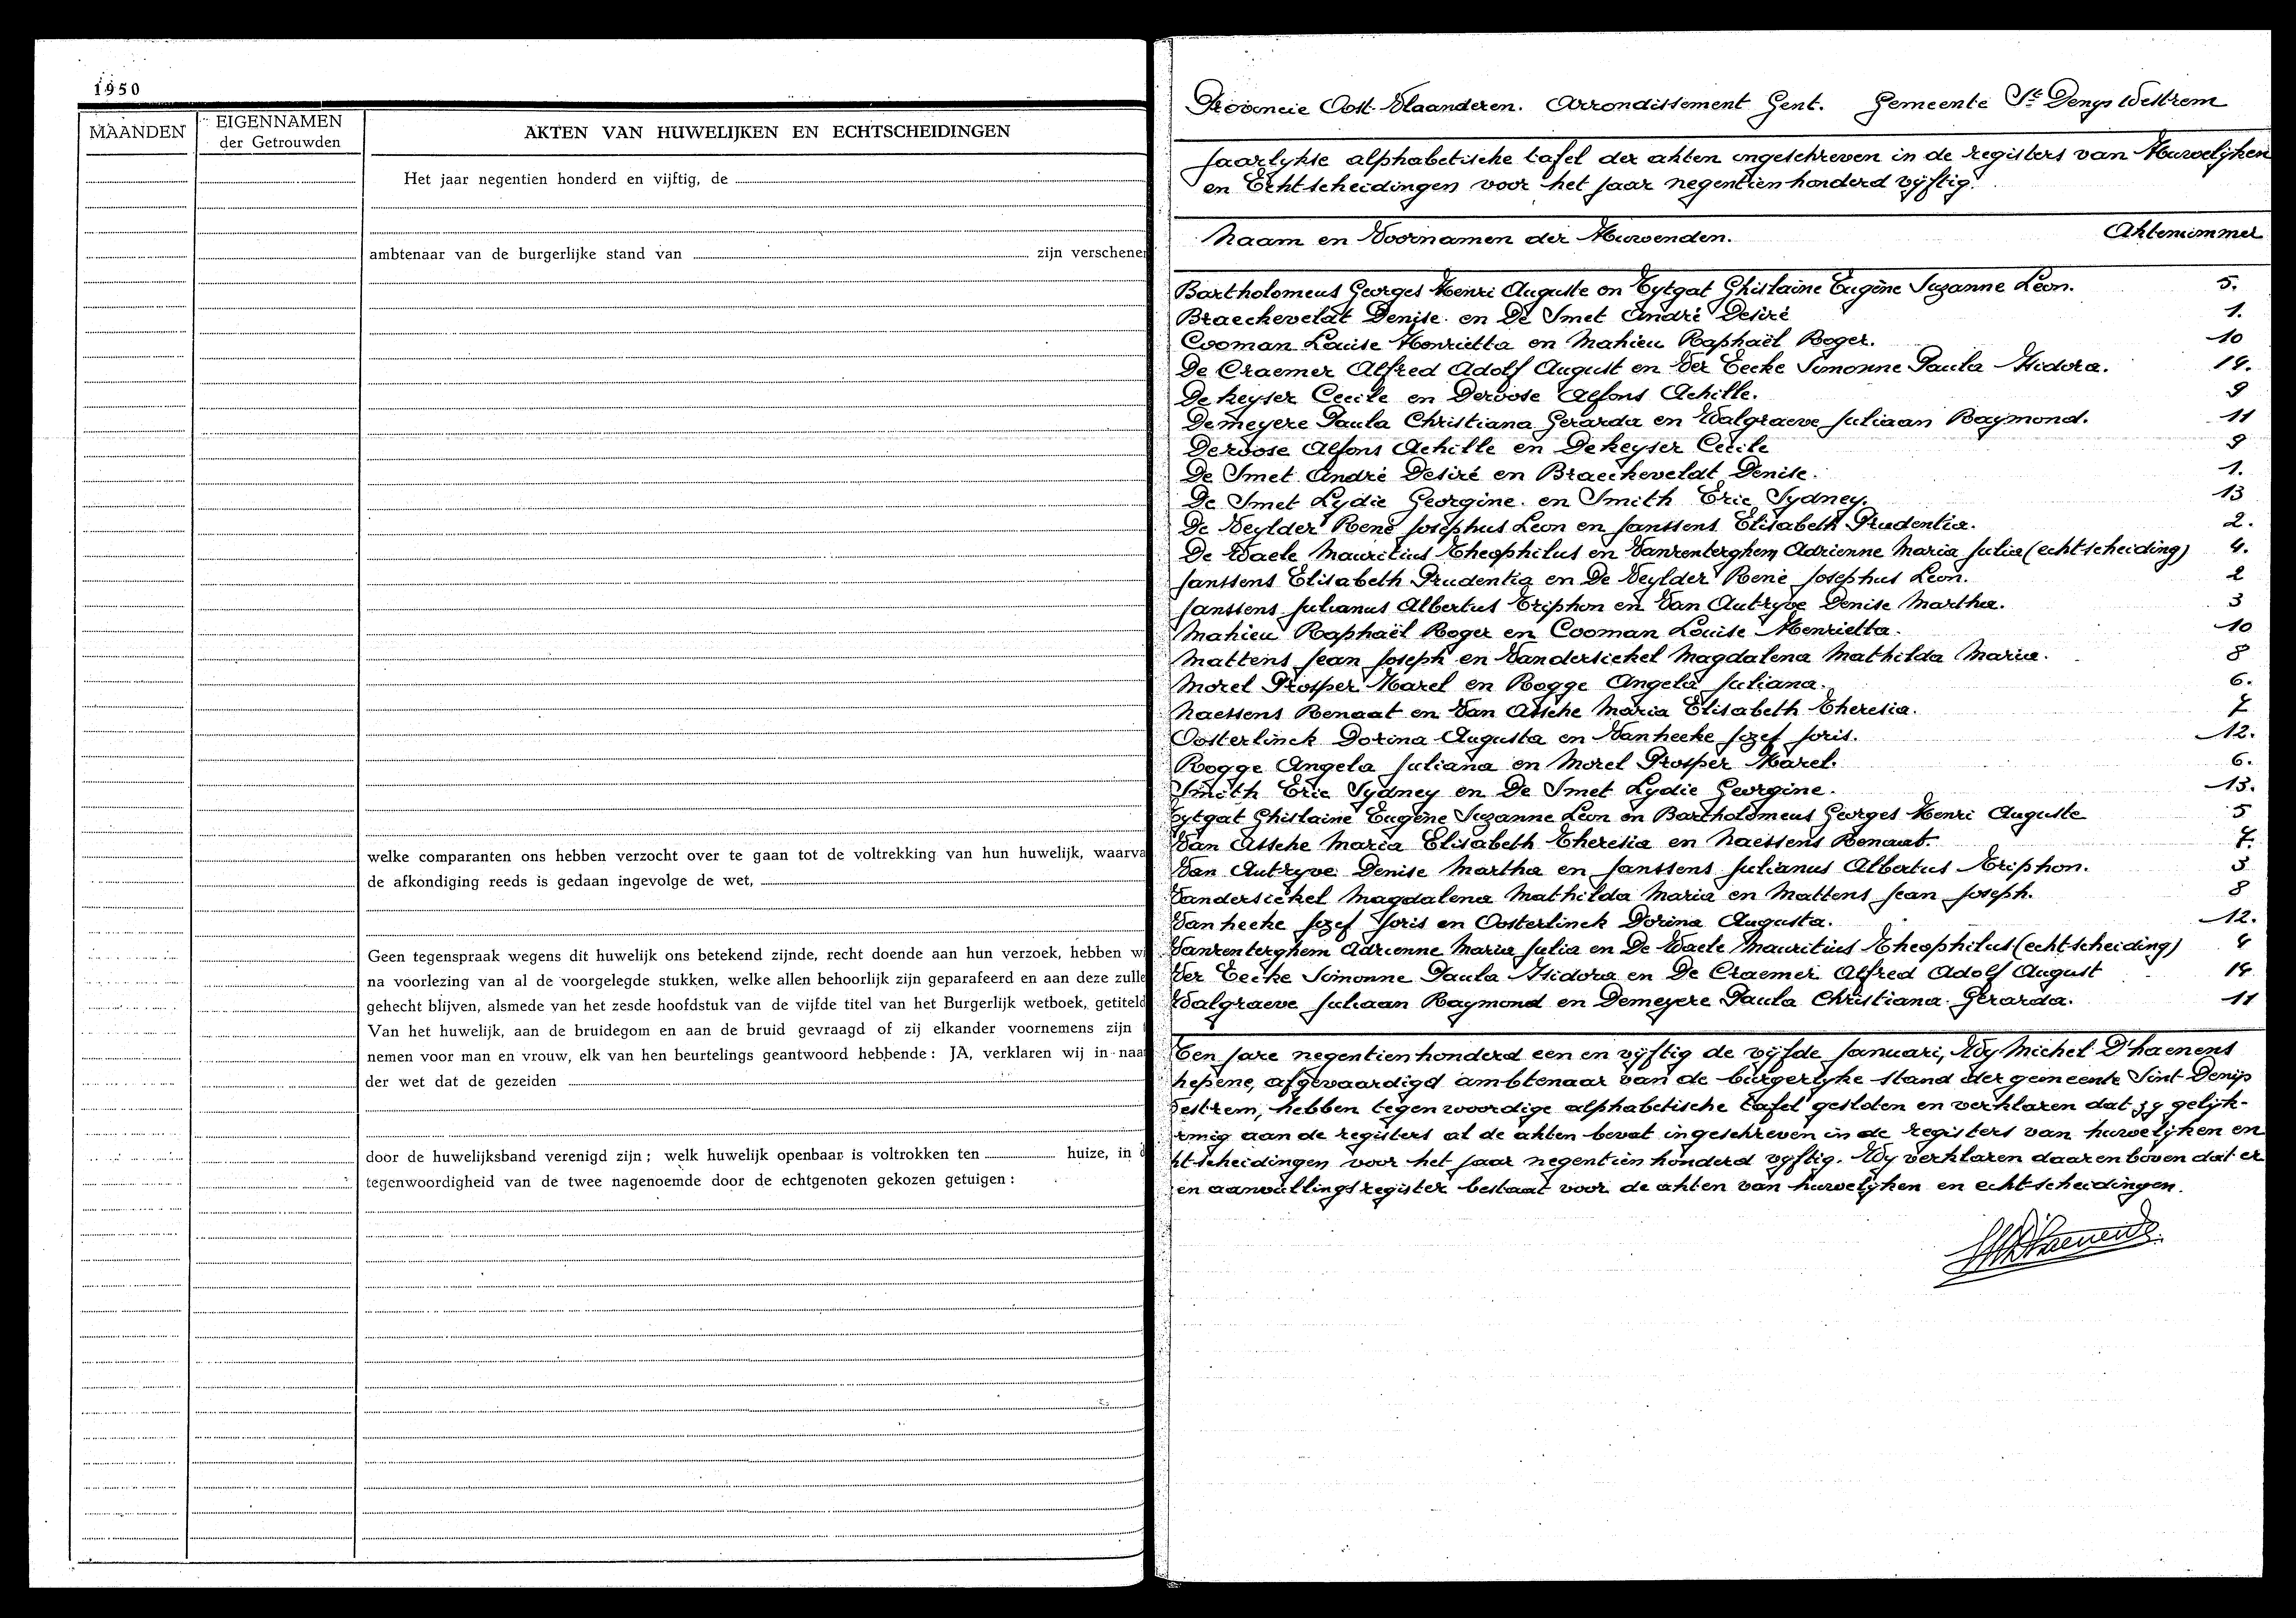 1950
MAANDEN
EIGENNAMEN
der Getrouwden
AKTEN VAN HUWELIJKEN EN ECHTSCHEIDINGEN
Het jaar negentien honderd en vijftig, de
ambtenaar van de burgerlijke stand van zijn verschenen
welke comparanten ons hebben verzocht over te gaan tot de voltrekking van hun huwelijk, waarva
de afkondiging reeds is gedaan ingevolge de wet,
Geen tegenspraak wegens dit huwelijk ons betekend zijnde, recht doende aan hun verzoek, hebben wi
na voorlezing van al de voorgelegde stukken, welke allen behoorlijk zijn geparafeerd en aan deze zulle
gehecht blijven, alsmede van het zesde hoofdstuk van de vijfde titel van het Burgerlijk wetboek, getiteld
Van het huwelijk, aan de bruidegom en aan de bruid gevraagd of zij elkander voornemens zijn
nemen voor man en vrouw, elk van hen beurtelings geantwoord hebbende: JA, verklaren wij in naa
der wet dat de gezeiden
door de huwelijksband verenigd zijn; welk huwelijk openbaar is voltrokken ten huize, in d
tegenwoordigheid van de twee nagenoemde door de echtgenoten gekozen getuigen:
Provincie Oost-Vlaanderen. Arrondissement Gent. Gemeente St Denys Westrem
Jaarlykse alphabetische tafel der akten ingeschreven in de registers van Huwelijken
en Echtscheidingen voor het jaar negentienhonderd vyftig.
Naam en Voornamen der Huwenden. Aktenummer
Bartholomeus Georges Henri Auguste en Tytgat Ghislaine Eugène Suzanne Léon. 5.
Braeckeveldt Denise en De Smet André Desiré 1.
Cooman Louise Henrietta en Mahieu Raphaël Roger. 10
De Craemer Alfred Adolf August en Ver Eecke Simonne Paula Isidora. 14.
De keyser Cecile en Deroose Alfons Achille. 9
Demeyere Paula Christiana Gerarda en Walgraeve Juliaan Raymond. 11
Deroose Alfons Achille en Dekeyser Cecile 9
De Smet André Desiré en Braeckeveldt Denise. 1.
De Smet Lydie Georgine en Smith Eric Sydney. 13
De Veylder René Josephus Leon en Janssens Elisabeth Prudentia. 2.
De Waele Mauritius Theophilus en Vanrenterghem Adrienne Maria Julia (echtscheiding) 4.
Janssens Elisabeth Prudentia en De Veylder René Josephus Leon. 2
Janssens Julianus Albertus Triphon en Van Autryve Denise Martha. 3
Mahieu Raphaël Roger en Cooman Louise Henrietta. 10
Mattens Jean Joseph en Vandersickel Magdalena Mathilda Maria. 8
Morel Prosper Karel en Rogge Angela Juliana. 6.
Naessens Renaat en Van Assche Maria Elisabeth Theresia. 7
Oosterlinck Dorina Augusta en Vanhecke Jozef Joris. 12.
Rogge Angela Juliana en Morel Prosper Karel. 6.
Smith Eric Sydney en De Smet Lydie Georgine. 13.
Tytgat Ghislaine Eugène Suzanne Leon en Bartholomeus Georges Henri Auguste 5
Van Assche Maria Elisabeth Theresia en Naessens Renaat. 7.
Van Autryve Denise Martha en Janssens Julianus Albertus Triphon. 3
Vandersickel Magdalena Mathilda Maria en Mattens Jean Joseph. 8
Vanhecke Jozef Joris en Oosterlinck Dorina Augusta. 12.
Vanrenterghem Adrienne Maria Julia en De Waele Mauritius Theophilus (echtscheiding) 4
Ver Eecke Simonne Paula Isidora en De Craemer Alfred Adolf August 14
Walgraeve Juliaan Raymond en Demeyere Paula Christiana Gerarda. 11
Ten jare negentienhonderd een en vyftig de vyfde Januari, Wy Michel D'haenens
hepene, afgevaardigd ambtenaar van de burgerlyke stand der gemeente Sint-Denys
estrem, hebben tegenwoordige alphabetische tafel gesloten en verklaren dat zy gelijk-
rmig aan de registers al de akten bevat ingeschreven in de registers van huwelijken en
htscheidingen voor het jaar negentien honderd vyftig. Wy verklaren daarenboven dat er
en aanvullingsregister bestaat voor de akten van huwelijken en echtscheidingen.